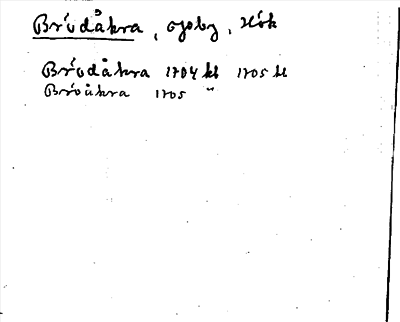 Brödåkra, Ysby, Hök
Brödåkra 1704 kl 1705 kl
Bröåkra 1705 "